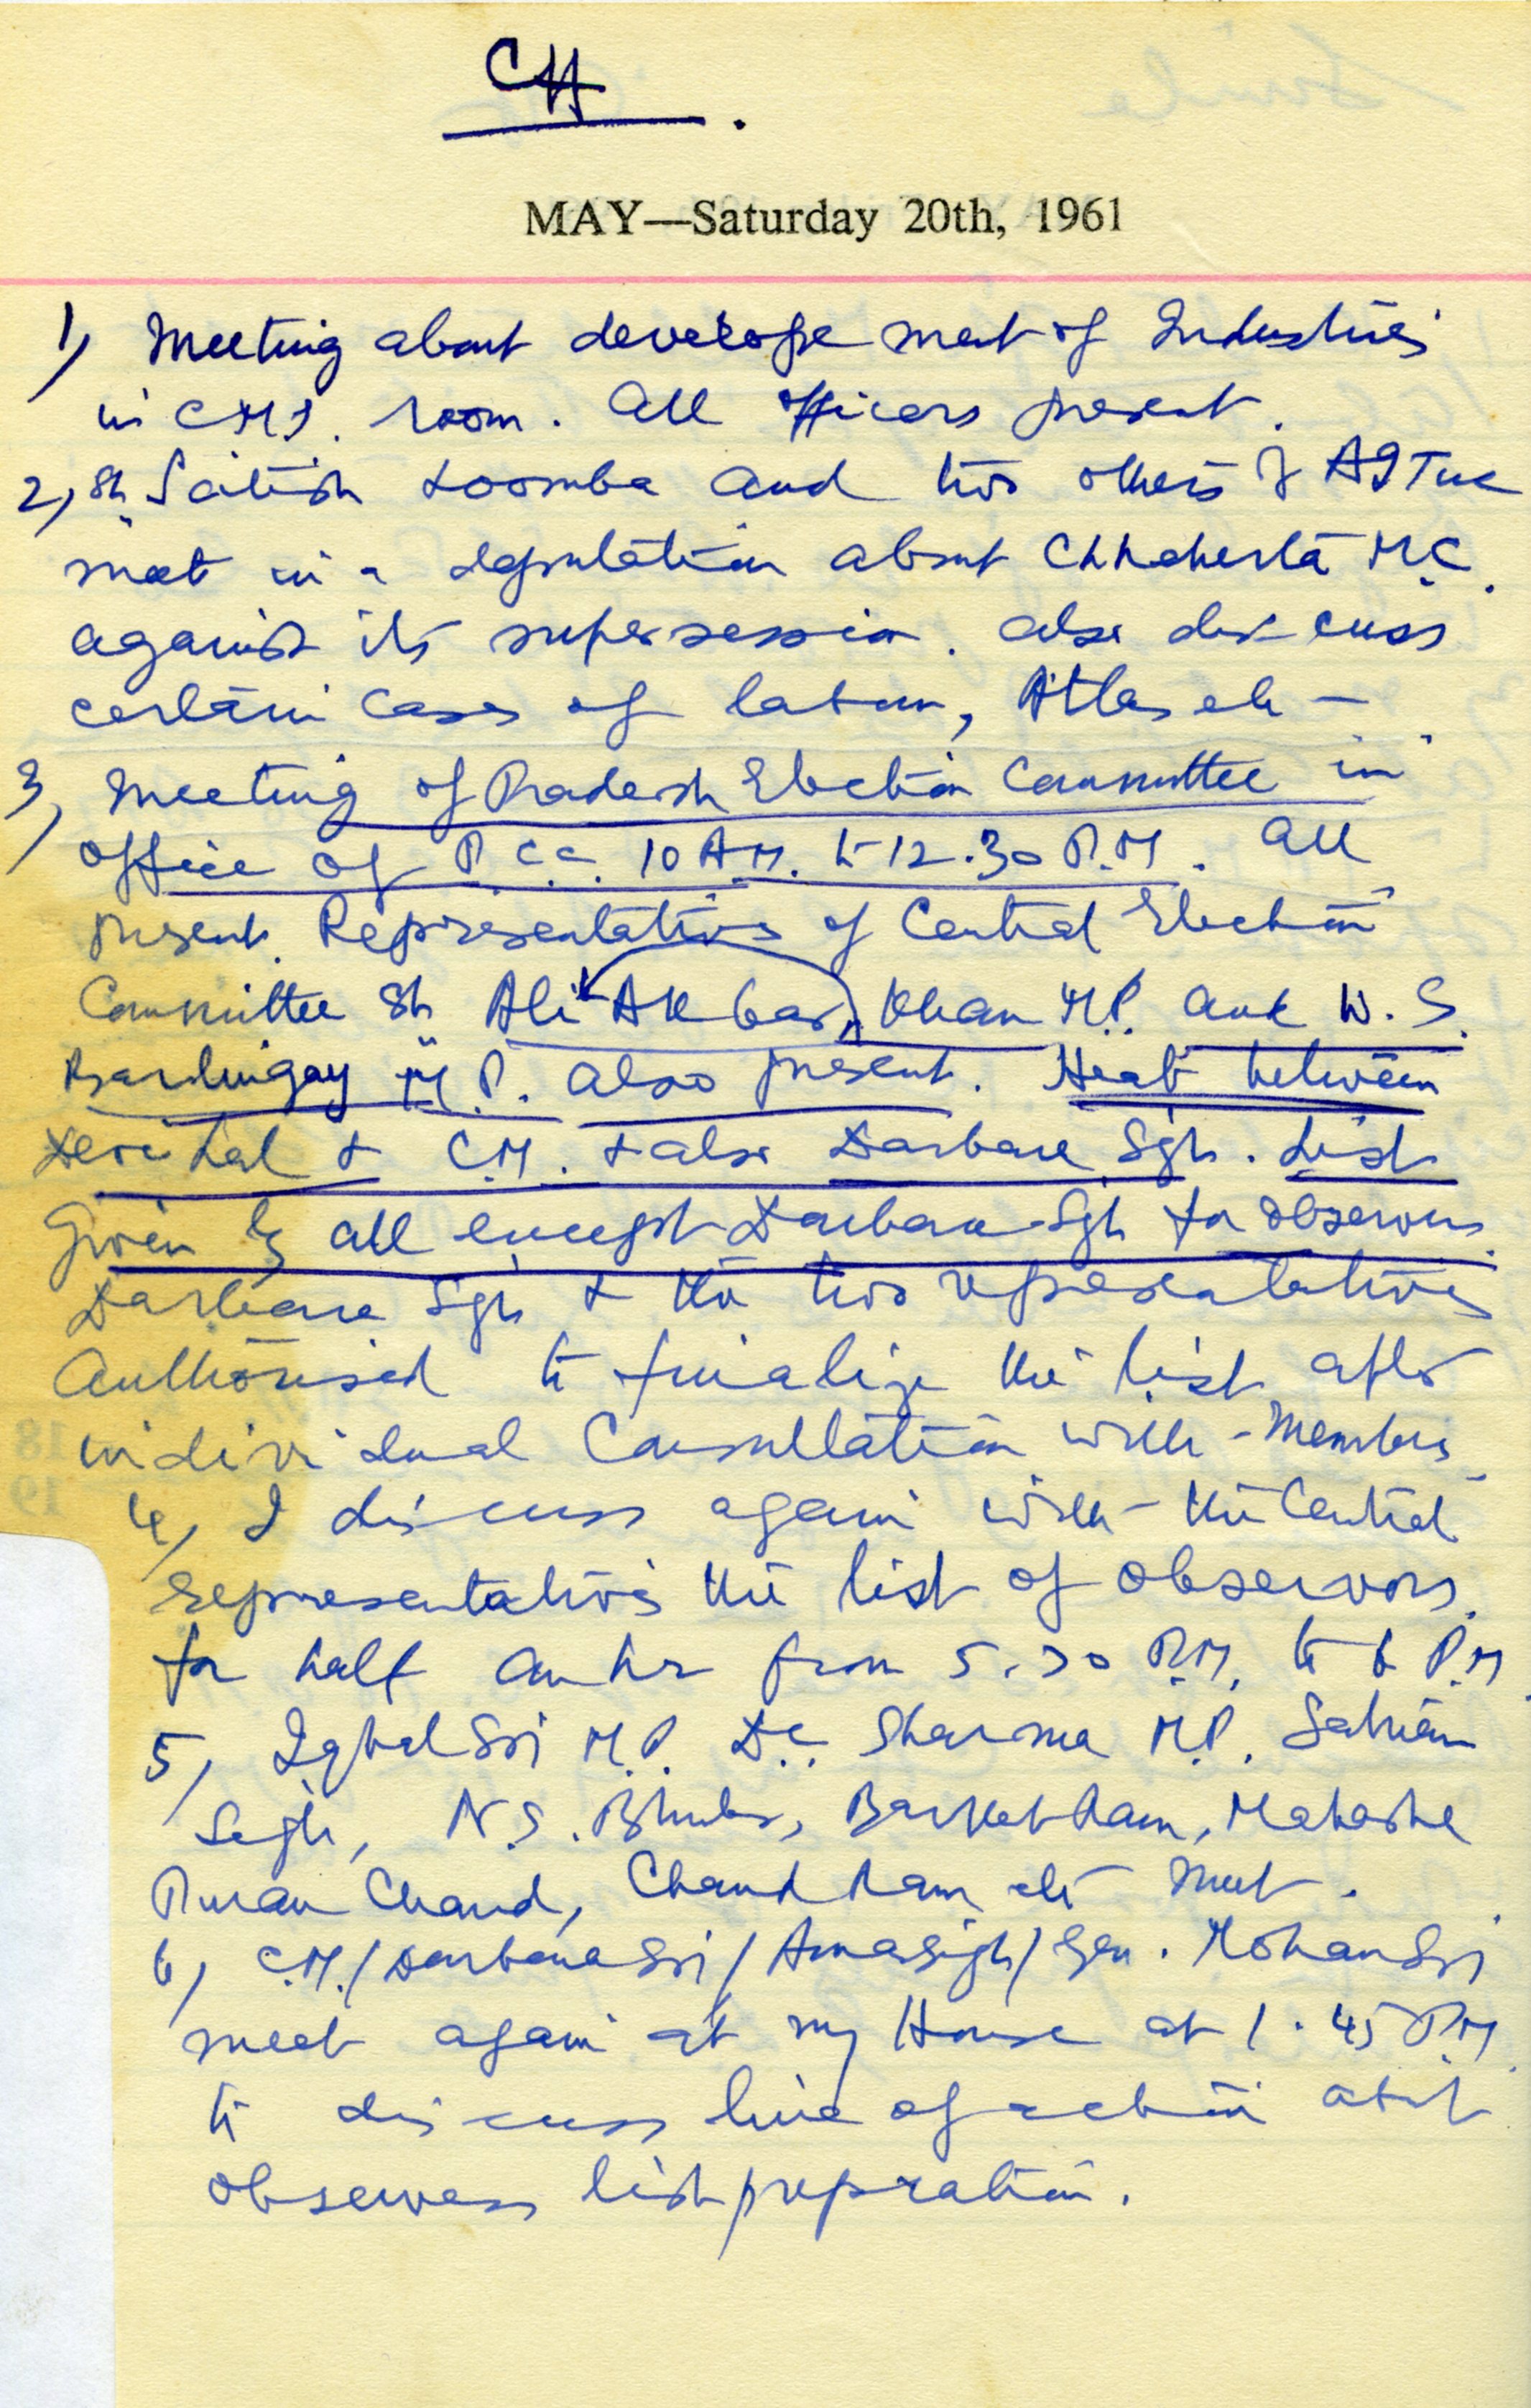 CH.
MAY—Saturday 20th, 1961
1) Meeting about develope ment of Industries
in CMs. room. All officers present.
2) Sh. Satish Loomba and two others of AITUC
meet in a deputation about Chheherta M.C.
against its supersession. Also discuss
certain cases of labour, Atlas etc –
3) Meeting of Pradesh Election Committee in
office of P.C.C. 10 A.M. to 12.30 P.M. All
present. Representatives of Central Election
Committee Sh. Ali Akbar Khan M.P. and W. S.
Barlingay M.P. also present. Heat between
Devi Lal & C.M. & also Darbara Sgh. List
given by all except Darbara Sgh for observers.
Darbara Sgh & the two representatives
authorised to finalize the list after
individual Consultation with Members
4) I discuss again with the Central
representatives the list of observors
for half an hr from 5.30 P.M. to 6 P.M.
5) Iqbal Sgh M.P. D.C. Sharma M.P.
Sgh, N.S. Barket Ram, Mahashe
Puran Chand, Chand Ram etc meet.
6) C.M./Darbara Sgh/Amar Sigh/Gen. Mohan Sgh
meet again at my House at 1.45 P.M.
to discuss line of action about
observers list prepration.